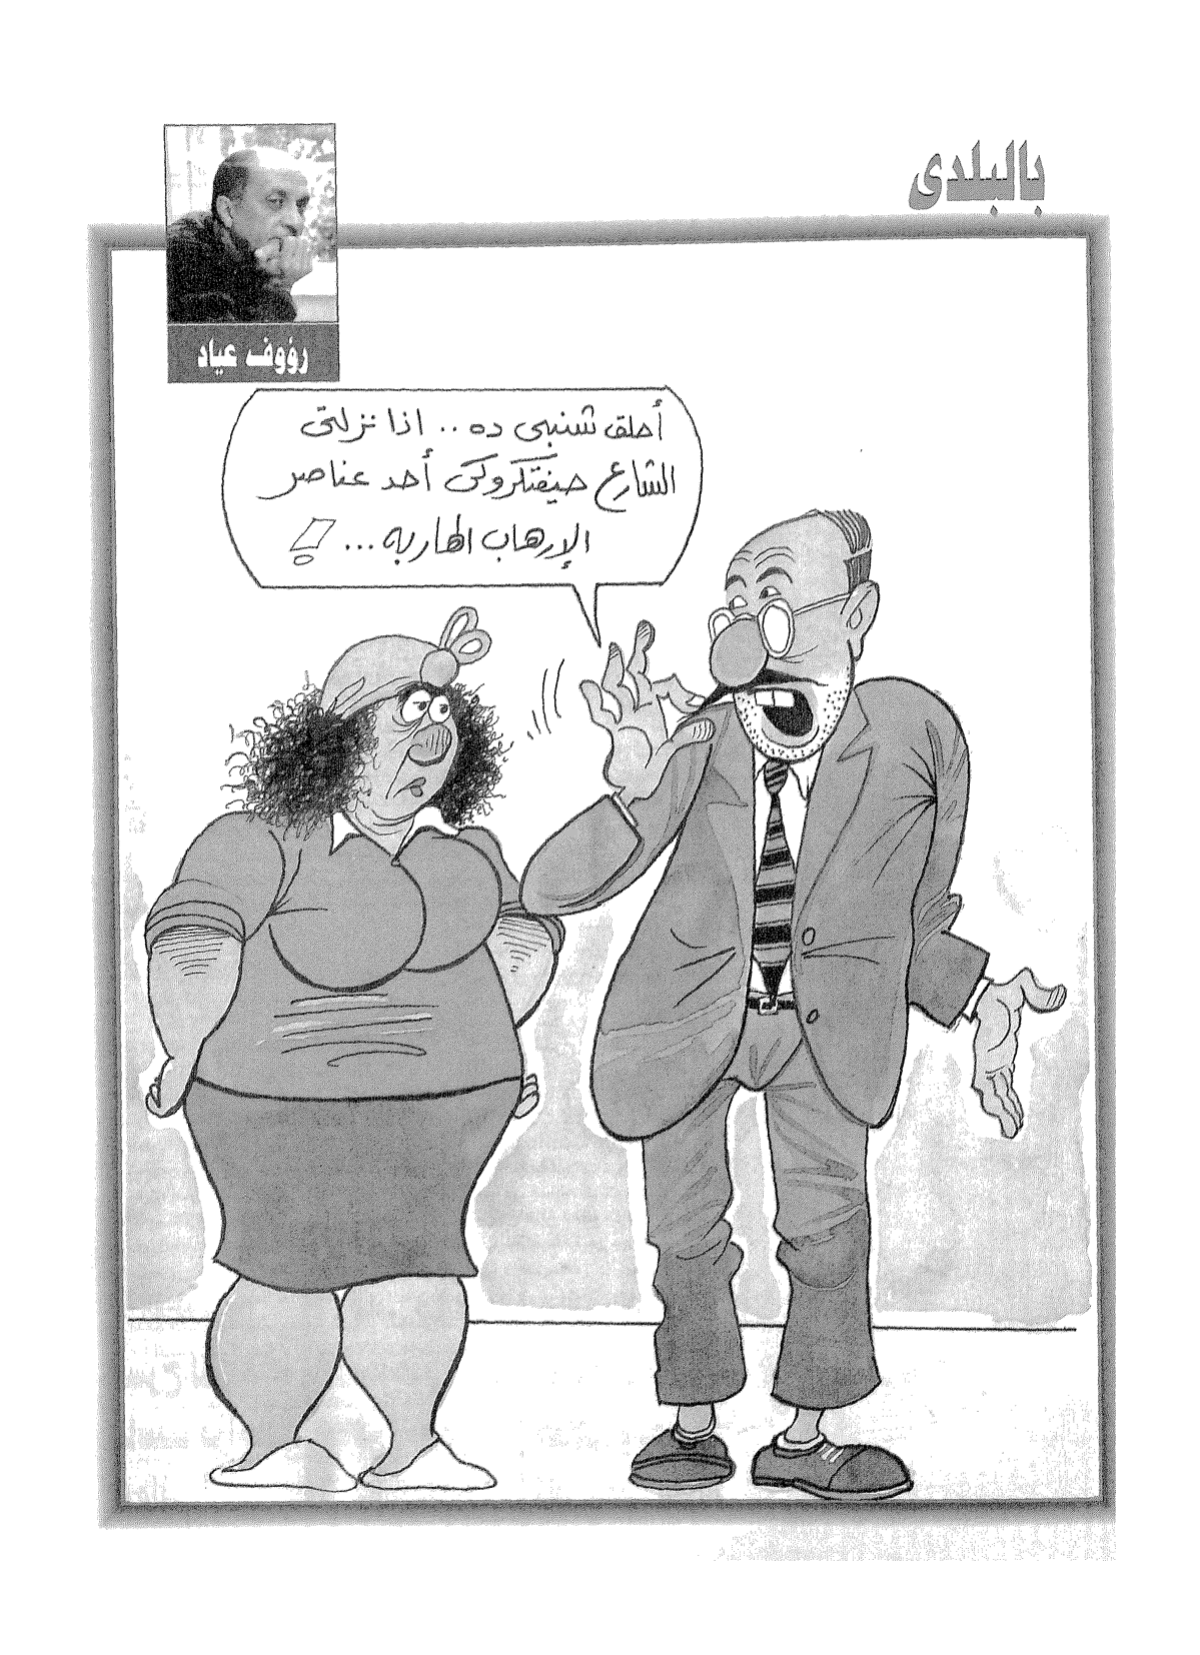 بالبلدى
رؤوف عياد
أحلق شنبى ده .. اذا نزلتى
الشارع حيفتكروكى أحد عناصر
الإرهاب الهاربه ... !